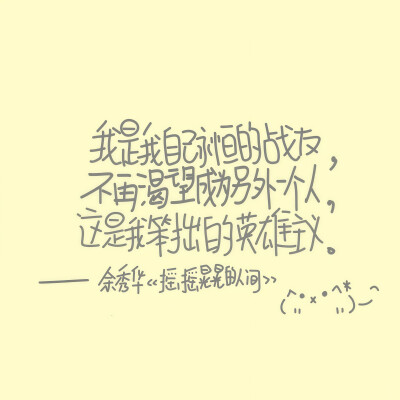 我是我自己永恒的战友，
不再渴望成为另外一个人，
这是我笨拙的英雄主义。
——余秀华《摇摇晃晃的人间》